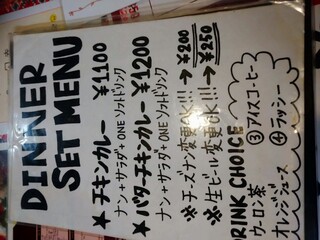 DINNER
SET MENU
★ チキンカレー ¥1100
ナン+サラダ+ONE ソフトドリンク
★ バターチキンカレー ¥1200
ナン+サラダ+ONE ソフトドリンク
※チーズナン変更OK!!! → ¥200
※生ビール変更OK!!! → ¥250
DRINK CHOICE
ウーロン茶 ③アイスコーヒー
オレンジジュース ④ラッシー